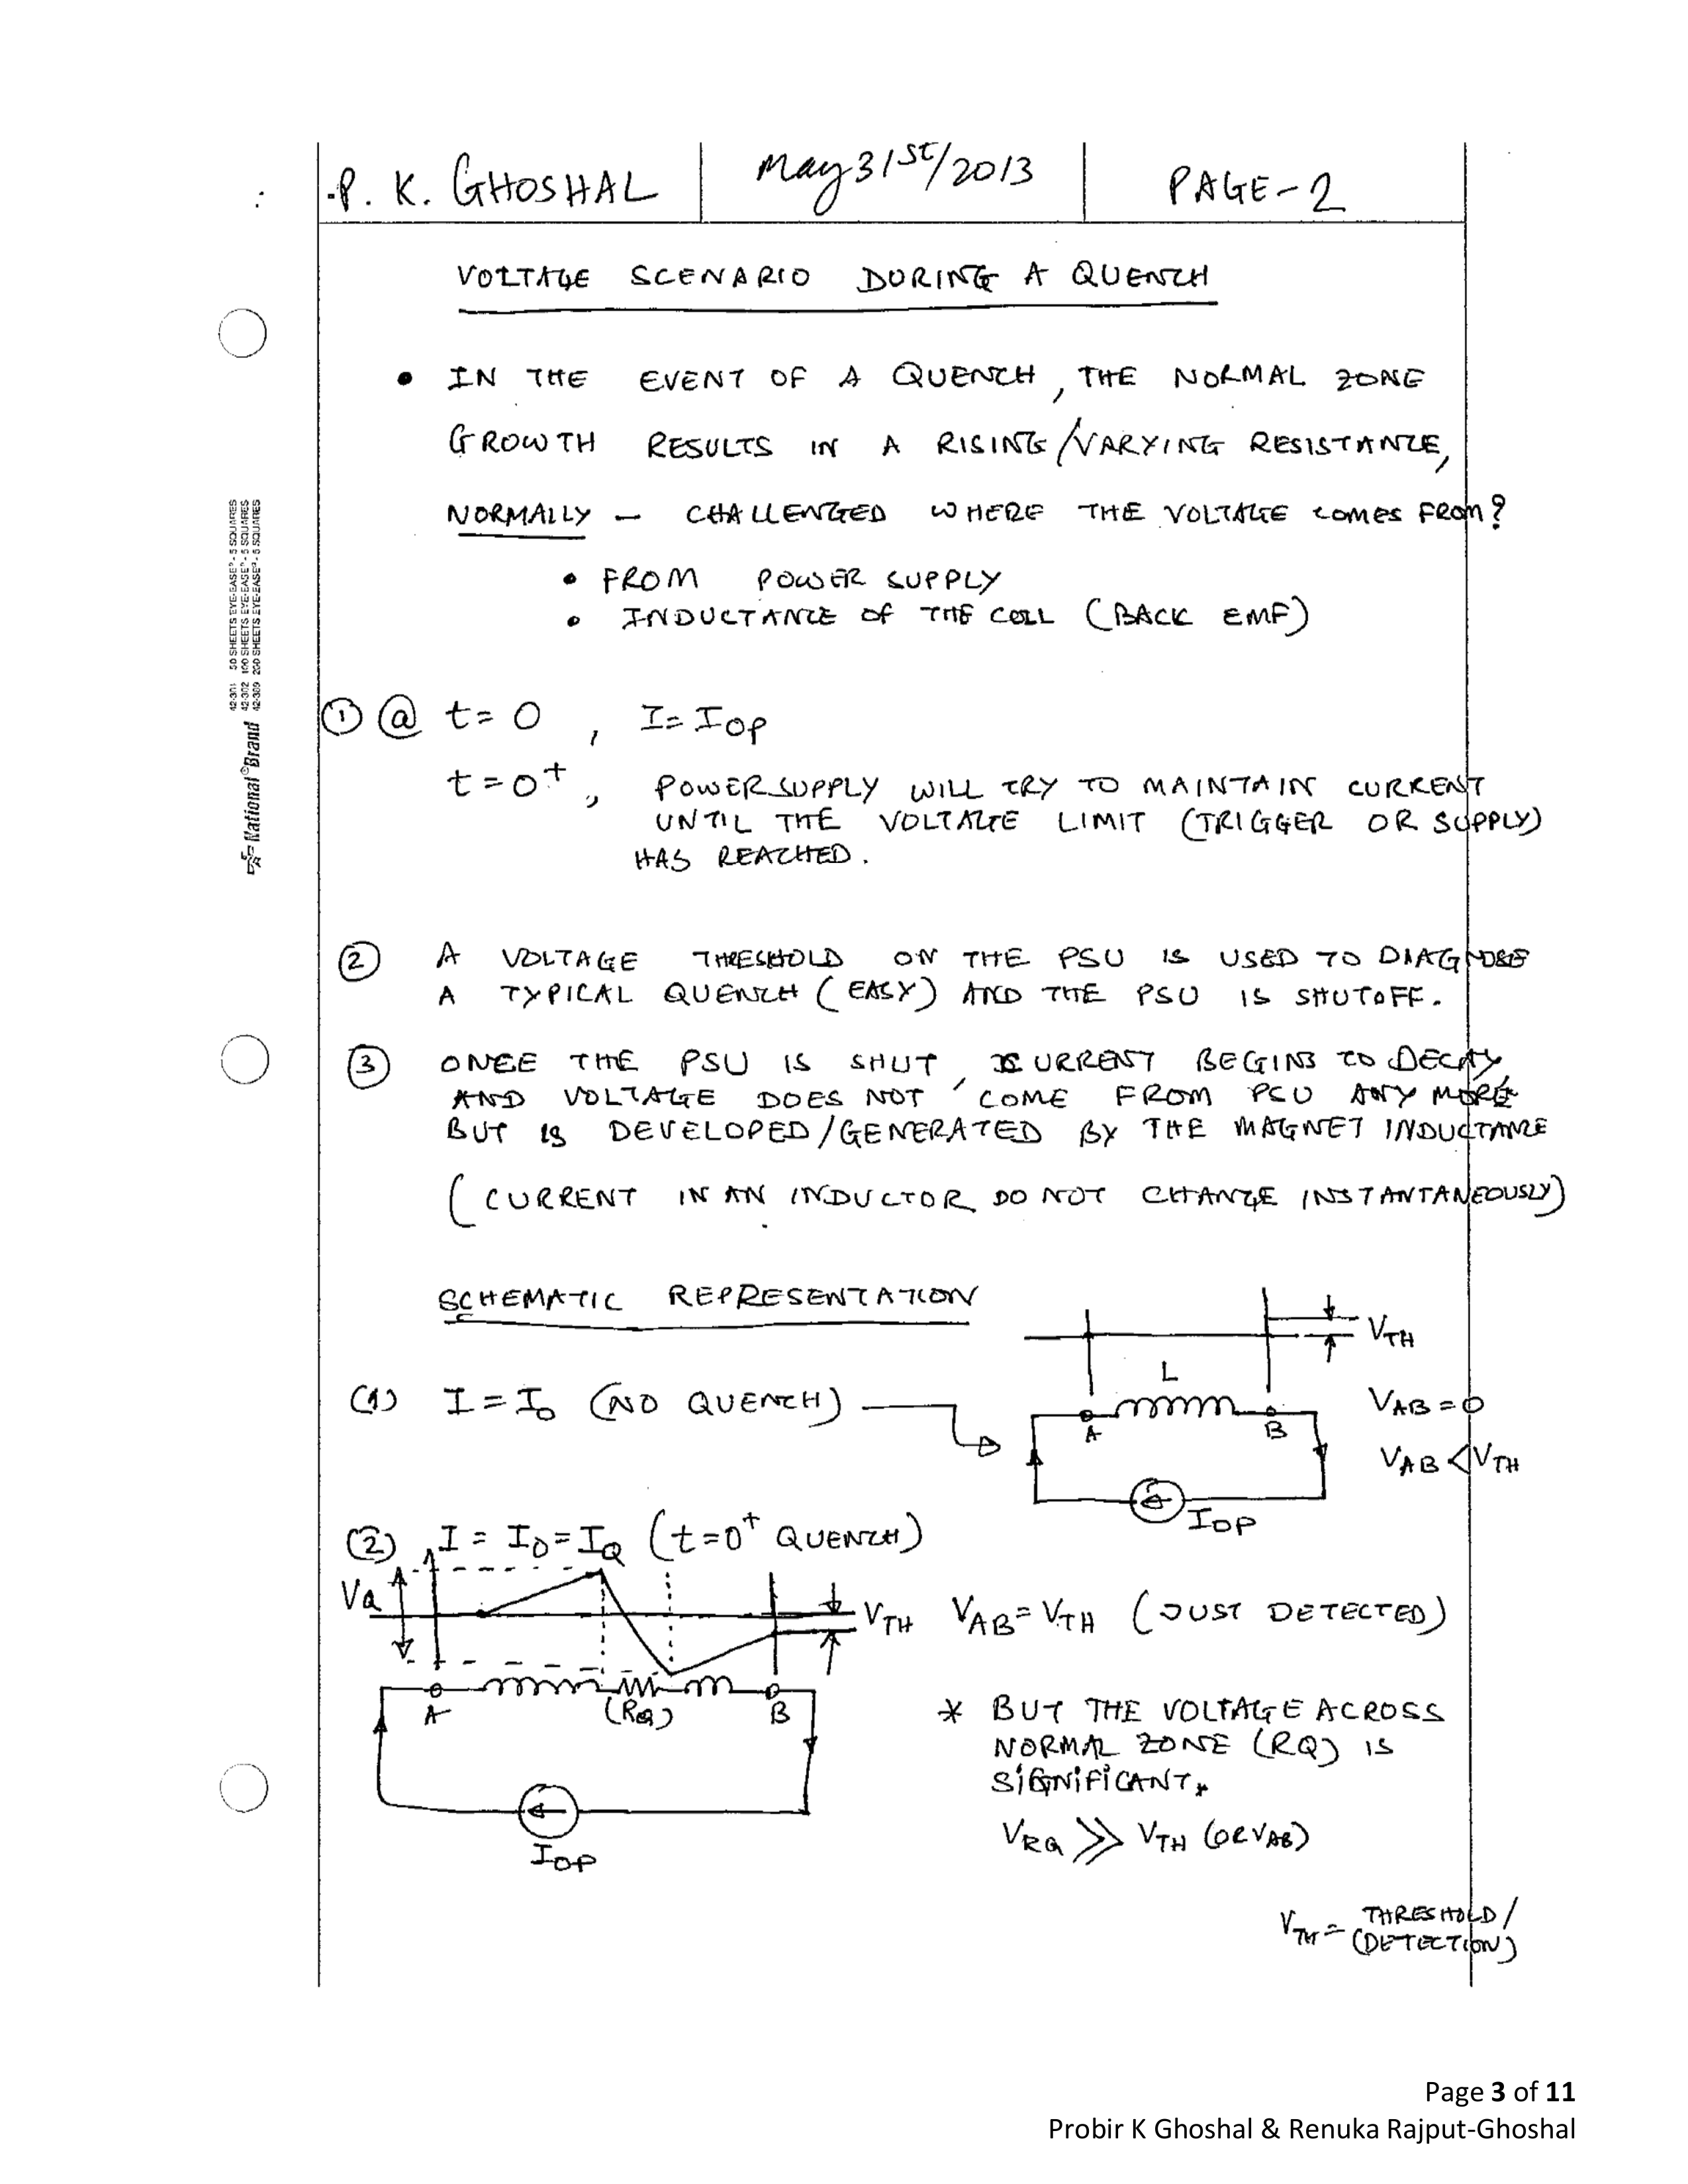 P. K. GHOSHAL
May 31st/2013
PAGE-2
VOLTAGE SCENARIO DURING A QUENCH
• IN THE EVENT OF A QUENCH, THE NORMAL ZONE
GROWTH RESULTS IN A RISING/VARYING RESISTANCE,
NORMALLY – CHALLENGED WHERE THE VOLTAGE COMES FROM?
• FROM POWER SUPPLY
• INDUCTANCE OF THE COIL (BACK EMF)
① @ t = 0, I = IOP
t = 0+, POWER SUPPLY WILL TRY TO MAINTAIN CURRENT
UNTIL THE VOLTAGE LIMIT (TRIGGER OR SUPPLY)
HAS REACHED.
② A VOLTAGE THRESHOLD ON THE PSU IS USED TO DIAGNOSE
A TYPICAL QUENCH (EASY) AND THE PSU IS SHUTOFF.
③ ONCE THE PSU IS SHUT, CURRENT BEGINS TO DECAY
AND VOLTAGE DOES NOT COME FROM PSU ANY MORE
BUT IS DEVELOPED/GENERATED BY THE MAGNET INDUCTANCE
(CURRENT IN AN INDUCTOR DO NOT CHANGE INSTANTANEOUSLY)
SCHEMATIC REPRESENTATION
VTH
L
(1) I = I0 (NO QUENCH)
A
B
VAB = 0
VAB < VTH
IOP
(2) I = I0 = IQ (t = 0+ QUENCH)
VQ
VTH
VAB = VTH (JUST DETECTED)
A
(RQ)
B
* BUT THE VOLTAGE ACROSS
NORMAL ZONE (RQ) IS
SIGNIFICANT.
VRQ >> VTH (OR VAB)
IOP
VTH = THRESHOLD/
(DETECTION)
42-301 50 SHEETS EYE-EASE® - 5 SQUARES
42-302 100 SHEETS EYE-EASE® - 5 SQUARES
42-389 200 SHEETS EYE-EASE® - 5 SQUARES
National® Brand
Page 3 of 11
Probir K Ghoshal & Renuka Rajput-Ghoshal